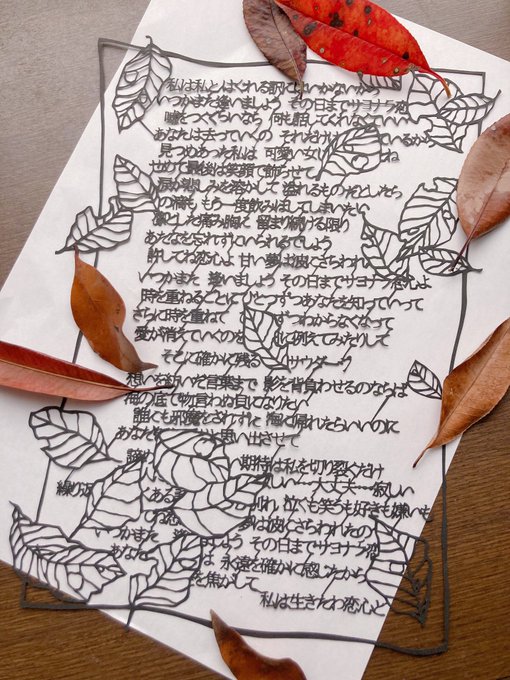 私は私とはぐれる訳にはいかないから
いつかまた逢いましょう その日までサヨナラ恋
嘘をつくぐらいなら 何も話してくれなくていい
あなたは去っていくの それだけは ているから
見つめあった私は 可愛い女 ね
せめて最後は笑顔で飾らせて
涙が悲しみを溶かして 溢れるものだとしたら
の滴も もう一度飲みほしてしまいたい
凛とした痛み胸に 留まり続ける限り
あなたを忘れずにいられるでしょう
許してね恋心よ 甘い夢は波にさらわれ
いつかまた 逢いましょう その日までサヨナラ恋心よ
時を重ねるごとに ひとつずつあなたを知っていって
さらに時を重ねて ずつわからなくなって
愛が消えていくのを に例えてみたりして
そこに確かに残る サウダージ
想いを紡いだ言葉まで 影を背負わせるのならば
海の底で物言わぬ貝になりたい
誰にも邪魔をされずに 海に帰れたらいいのに
あなた 思い出させて
諦め 期待は私を切り裂くだけ
繰り返 ある しい……大丈夫…寂しい
れ 泣くも笑うも好きも嫌いも
てね恋 夢は波にさらわれたの
いつかまた 逢 しょう その日までサヨナラ恋
あなた は 永遠を確かに感じたから
を焦がして
私は生きたわ恋心と